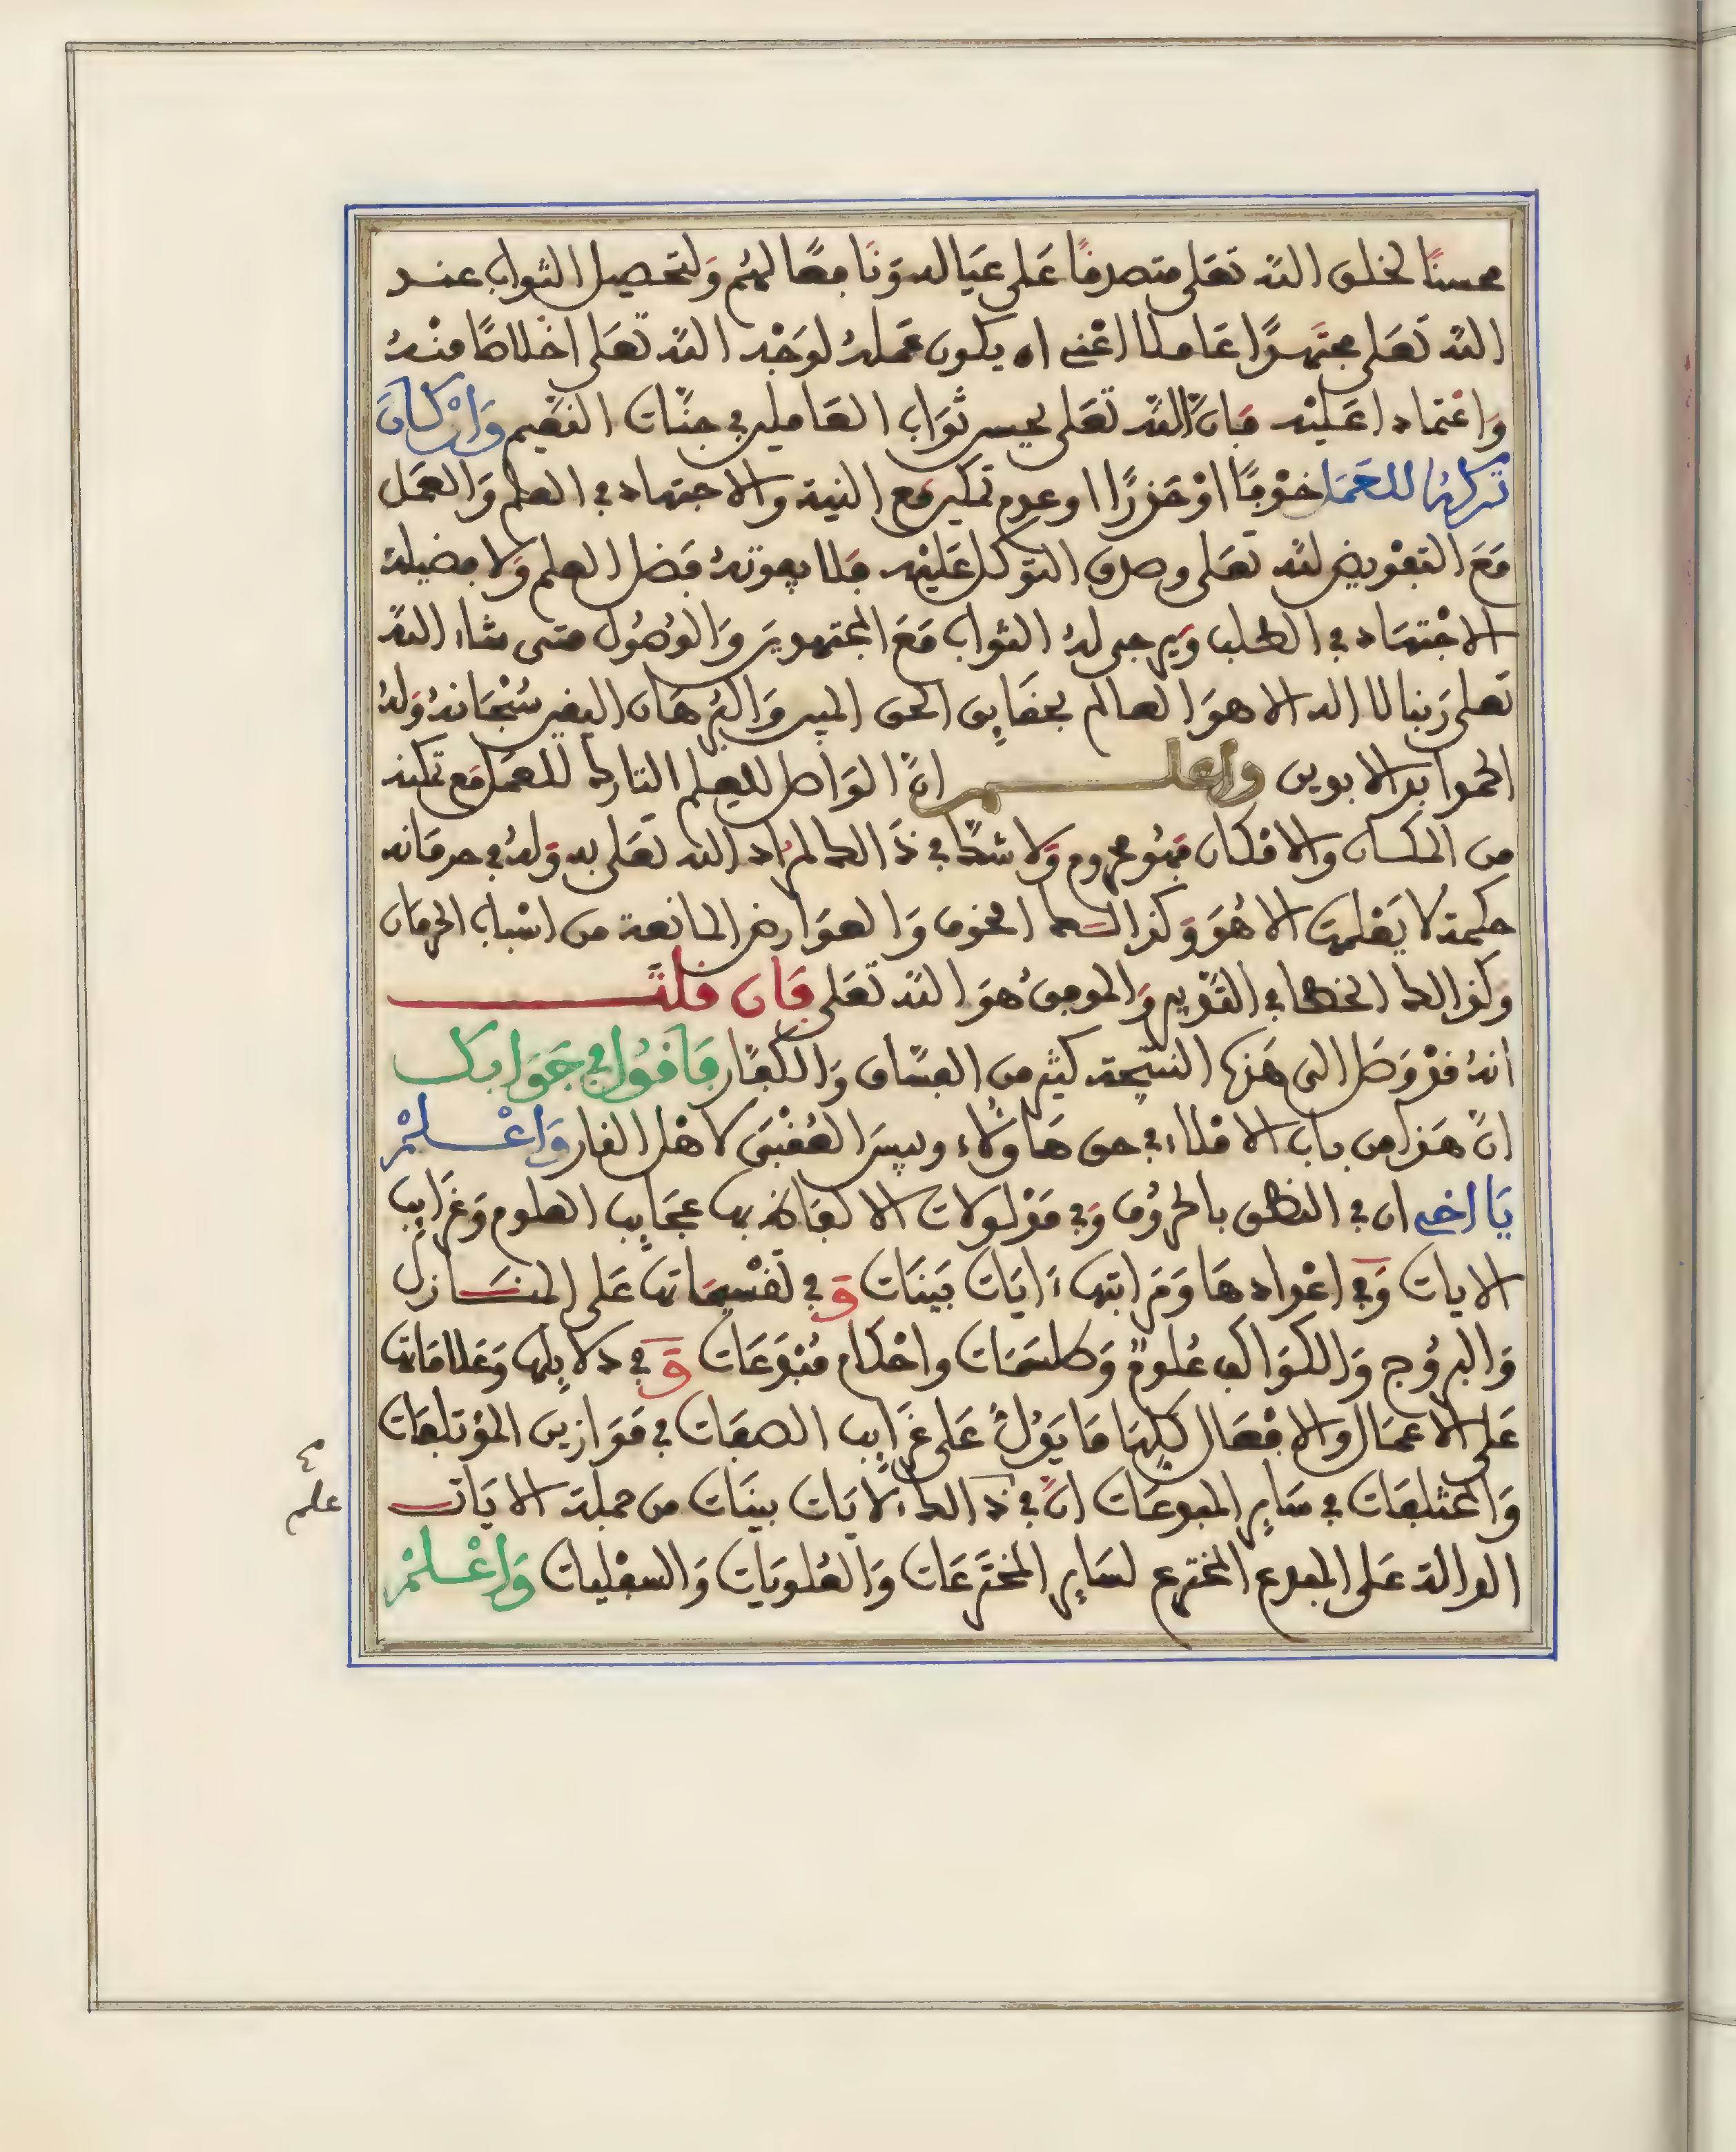 محسنًا لخلق الله تعلى متصدقًا على عياله ونافعًا لهم ولتحصيل الثواب عند
الله تعلى مجتهدًا عاملا اعني ان يكون عمله لوجه الله تعلى اخلاصًا منه
واعتمادا عليه فان الله تعلى يحسن ثواب العاملين في جنات النعيم وان كان
تركه للعمل خوفًا او حذرًا او عدم تمكين مع النية والاجتهاد في العلم والعمل
مع التفويض لله تعلى وصدق التوكل عليه فلا يفوته فضل العلم ولا فضيلة
الاجتهاد في الطلب ويرجى له الثواب مع المجتهدين والوصول متى شاء الله
تعلى ربنا لا اله الا هو العالم بحقايق الحق المبين والبرهان اليقين سبحانه وله
الحمد ابد الابدين واعلم ان الواصل للعلم التارك للعمل مع تمكنه
من المكان والامكان فهو محروم ولا شك في ذالك لمراد الله تعلى به وله في حرمانه
حكمة لا يعلمها الا هو وكذالك الخوف والعوارض المانعة من اسباب الحرمان
وكذالك الخطا في التدبير والموفق هو الله تعلى فان قلت
انه قد وصل الى هذه النتيجة كثير من الفساق والكفار فاقول في جوابك
ان هذا من باب الاملاء في حق هاولاء وليس العقبى لاهل النار واعلم
يا اخي ان في النطق بالحروف وفي مدلولات الالفاظ بها عجايب العلوم وغرايب
الايات وفي اعدادها ومراتبها ءايات بينات و في تقسيماتها على المنازل
والبروج والكواكب علوم وطلسمات واحكام متبوعات و في دلايلها وعلاماتها
على الاعمال والافعال كلها ما يدل على غرايب الصفات في موازين المؤتلفات
والمختلفات في ساير المبدعات ان في ذالك لايات بينات من جملة الايات
الدالة على المبدع المخترع لساير المخترعات والعلويات والسفليات واعلم
علم